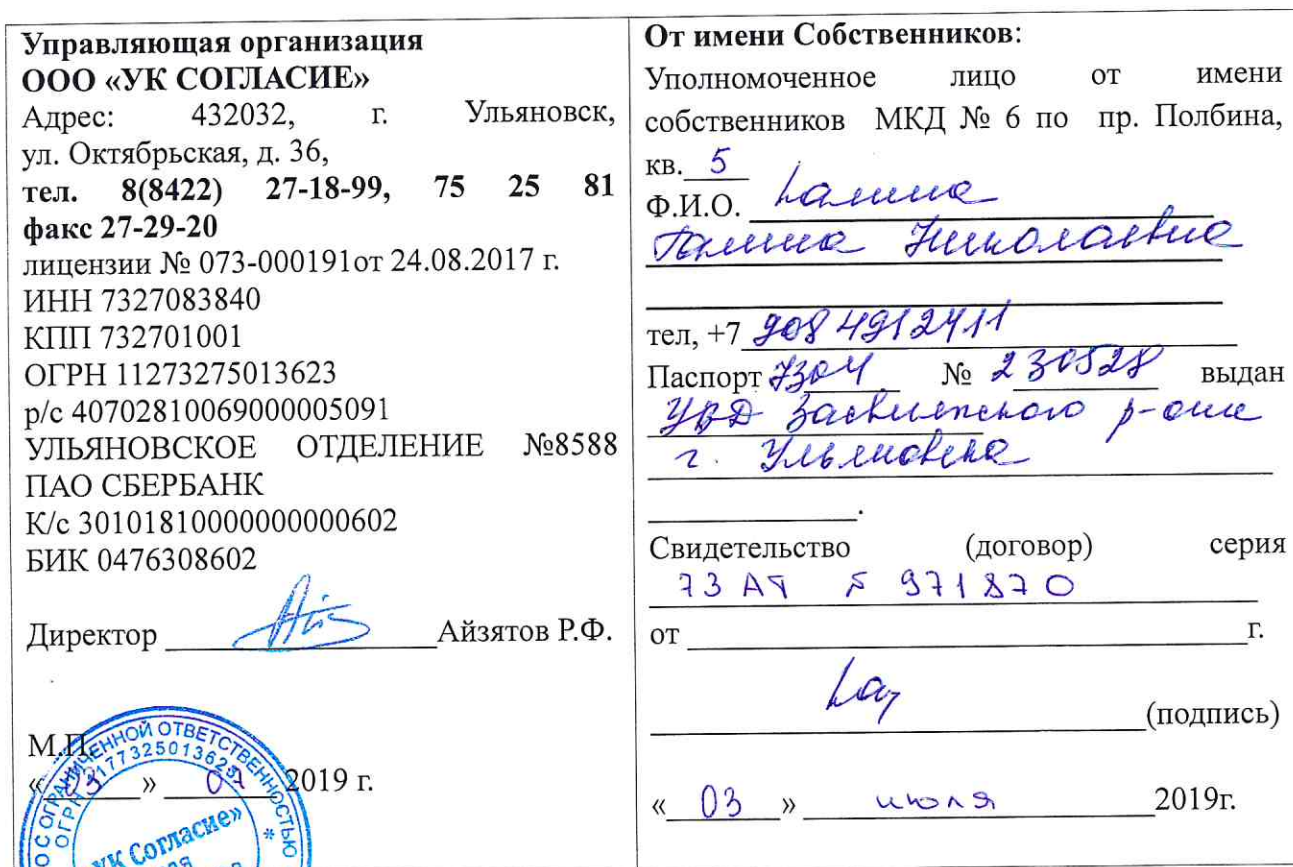 Управляющая организация
ООО «УК СОГЛАСИЕ»
Адрес: 432032, г. Ульяновск,
ул. Октябрьская, д. 36,
тел. 8(8422) 27-18-99, 75 25 81
факс 27-29-20
лицензии № 073-000191от 24.08.2017 г.
ИНН 7327083840
КПП 732701001
ОГРН 11273275013623
р/с 40702810069000005091
УЛЬЯНОВСКОЕ ОТДЕЛЕНИЕ №8588
ПАО СБЕРБАНК
К/с 30101810000000000602
БИК 0476308602
Директор Айзятов Р.Ф.
М.П.
«03» 07 2019 г.
С ОГРАНИЧЕННОЙ ОТВЕТСТВЕННОСТЬЮ
ОГРН
УК Согласие»
От имени Собственников:
Уполномоченное лицо от имени
собственников МКД № 6 по пр. Полбина,
кв. 5
Ф.И.О.
Галина Николаевна
тел, +7 9084912411
Паспорт 7304 № 230528 выдан
УВД Засвияжского р-она
г. Ульяновска
.
Свидетельство (договор) серия
73 АТ 971870
от г.
(подпись)
«03» июля 2019г.